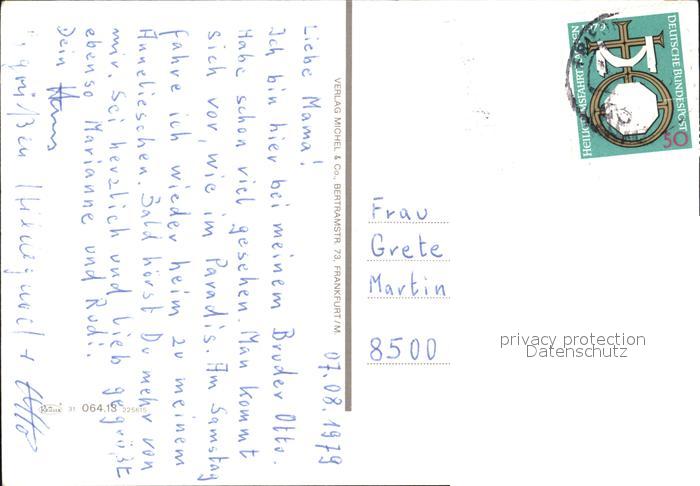 07.08.1979
Liebe Mama!
Ich bin hier bei meinem Bruder Otto.
Habe schon viel gesehen. Man kommt
sich vor, wie im Paradis. Am Samstag
fahre ich wieder heim zu meinem
Annelieschen. Bald hörst Du mehr von
mir. Sei herzlich und lieb gegrüßt
ebenso Marianne und Rudi.
Dein
+ Otto
VERLAG MICHEL & Co., BERTRAMSTR. 73, FRANKFURT/M.
31 064.18 225615
DEUTSCHE BUNDESPOST
50
Frau
Grete
Martin
8500
privacy protection
Datenschutz